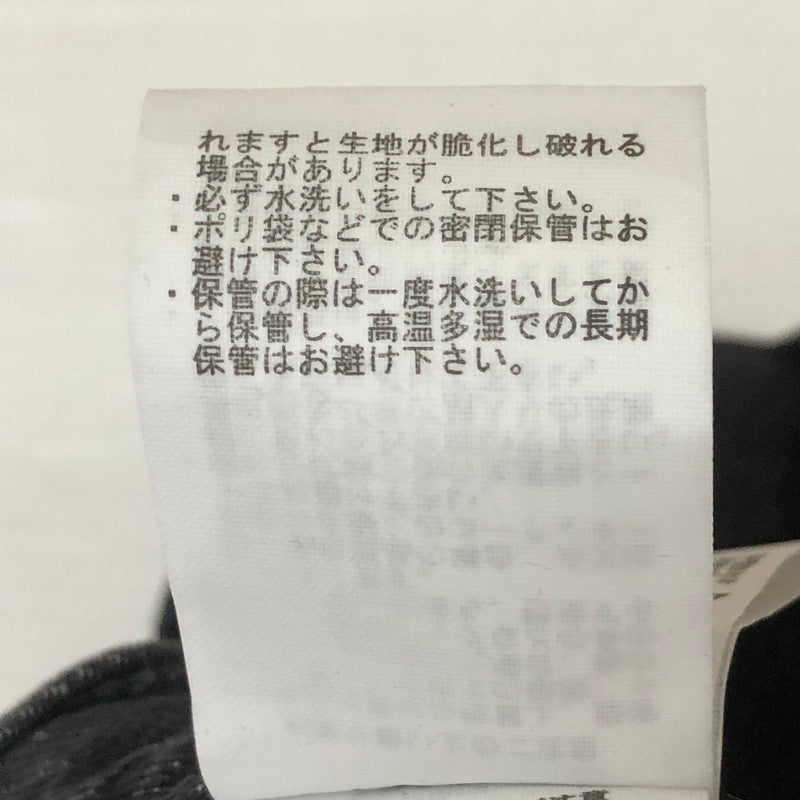 れますと生地が脆化し破れる
場合があります。
・必ず水洗いをして下さい。
・ポリ袋などでの密閉保管はお
避け下さい。
・保管の際は一度水洗いしてか
ら保管し、高温多湿での長期
保管はお避け下さい。